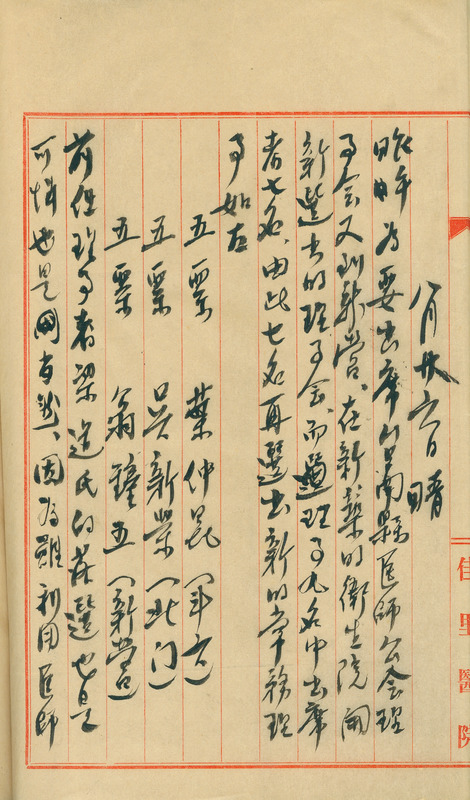 八月廿六日 晴
昨午為要出席台南縣医師公会理
事会又到新營、在新築的衛生院開
新選出的理事会、而選理事九名中出席
者七名、由此七名再選出新的常務理
事如左
五票 葉仲昆
五票 吳新榮（北门）
五票 翁鐘五（新營）
前任理事者梁道氏的落選也是
可惜也是固当然、因為雖利用医師
佳里醫院